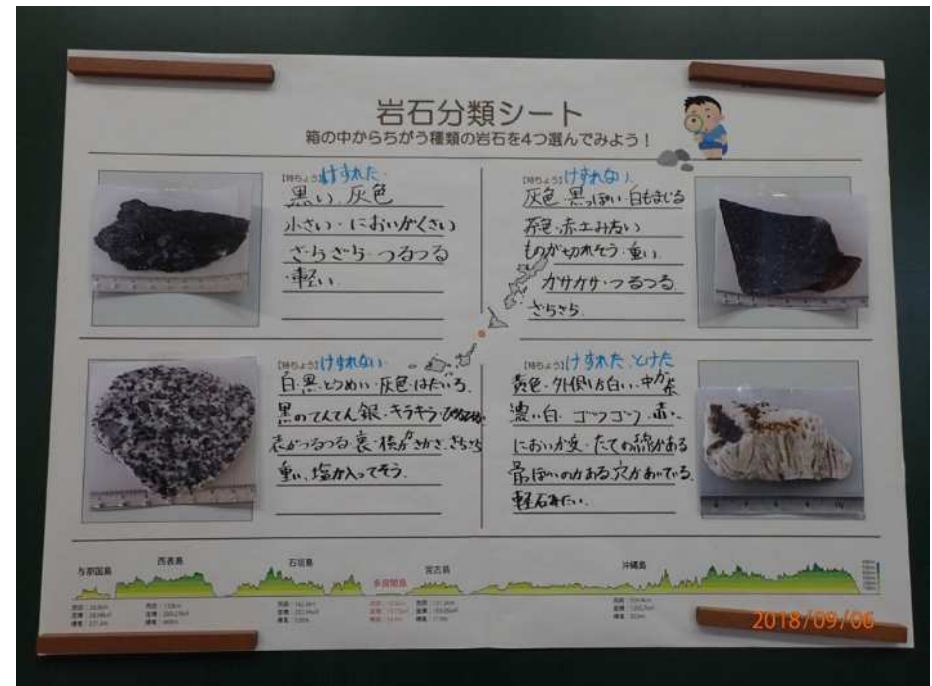 岩石分類シート
箱の中からちがう種類の岩石を4つ選んでみよう！
【特ちょう】けずれた
黒い、灰色
小さい・においがくさい
ざらざら・つるつる
・軽い
【特ちょう】けずれない
灰色・黒っぽい・白もまじる
茶色・赤土みたい
ものが切れそう・重い
カサカサ・つるつる
ざらざら
【特ちょう】けずれない
白・黒・とうめい・灰色・はだいろ
黒のてんてん・銀・キラキラ
表がつるつる・裏・横が
重い、塩が入ってそう
【特ちょう】けずれた とけた
黄色・外側が白い・中が茶
濃い白・ゴツゴツ・赤い
においが変・たての線がある
骨ぽいのがある、穴があいている
軽石みたい
与那国島
西表島
石垣島
多良間島
宮古島
沖縄島
2018/09/06